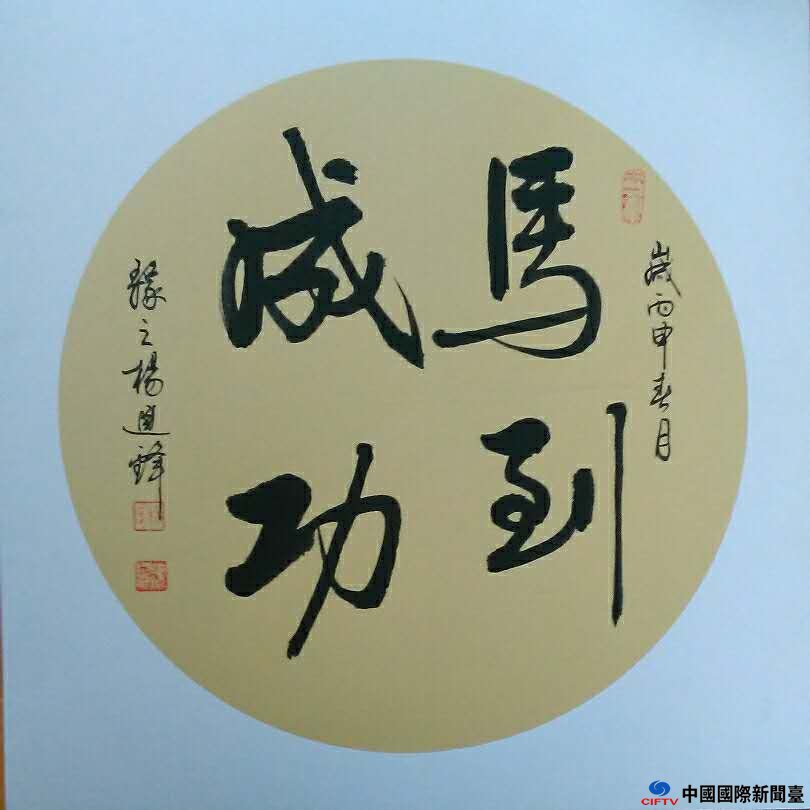 馬到
成功
歲丙申春月
緣之楊進鋒
CIFTV 中國國際新聞臺